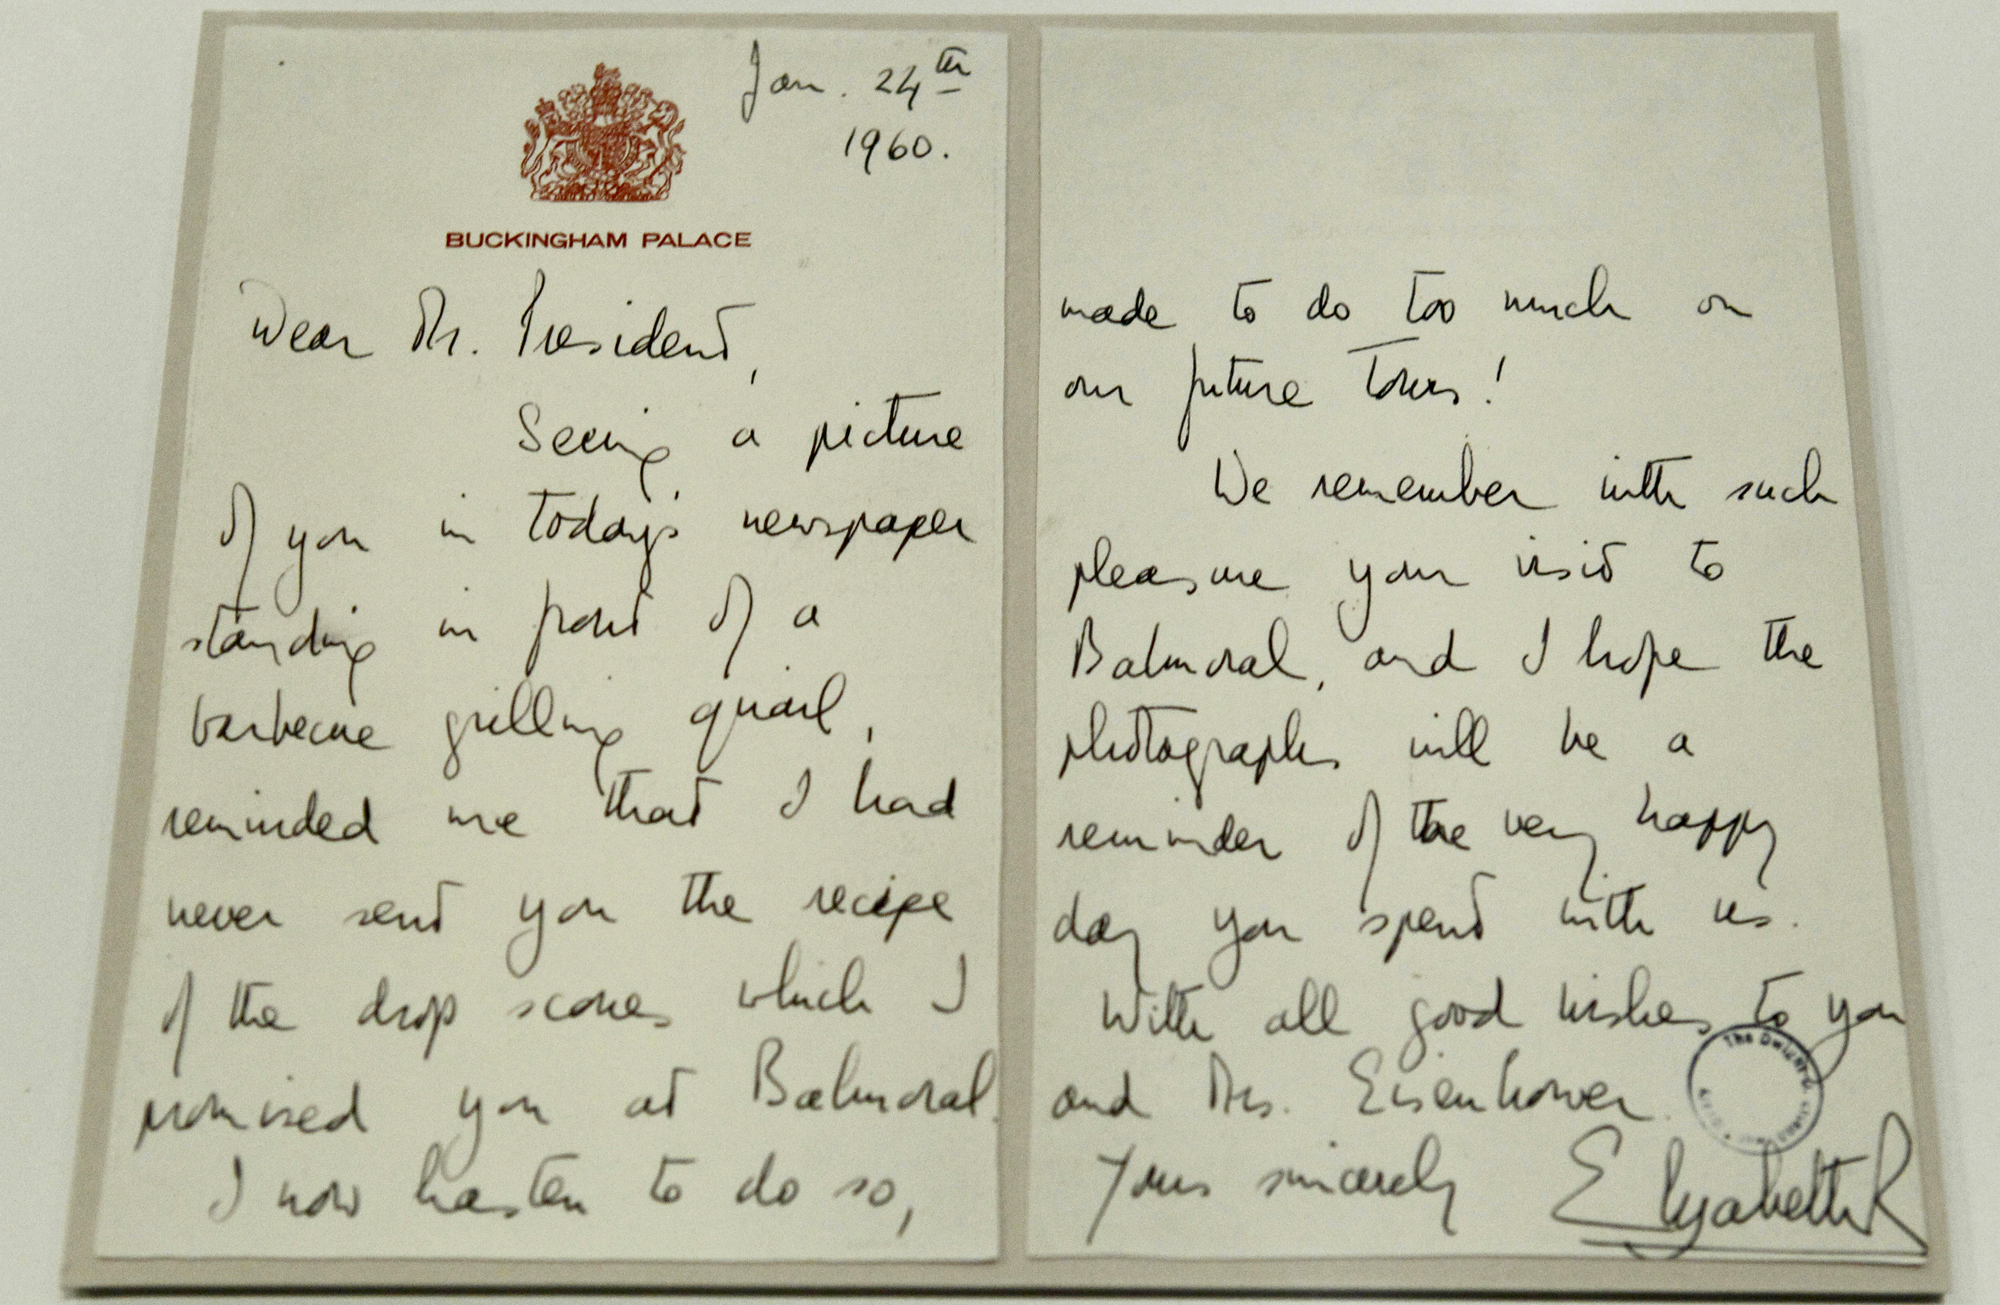 Jan. 24th
1960.
BUCKINGHAM PALACE
Dear Mr. President,
Seeing a picture
of you in today's newspaper
standing in front of a
barbecue grilling quail,
reminded me that I had
never sent you the recipe
of the drop scones which I
promised you at Balmoral.
I now hasten to do so,
made to do too much on
our future Tours!
We remember with such
pleasure your visit to
Balmoral, and I hope the
photographs will be a
reminder of the very happy
day you spent with us.
With all good wishes to you
and Mrs. Eisenhower.
Yours sincerely
Elizabeth R
The Dwight D.